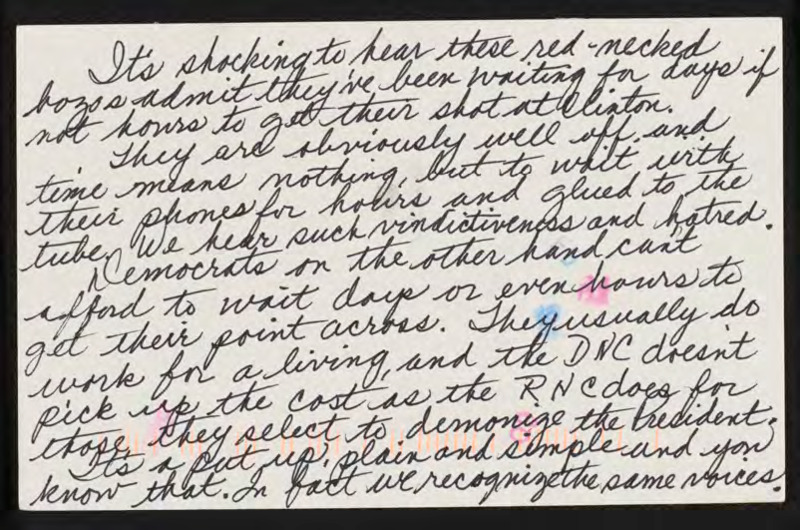 It's shocking to hear these red-necked
bozos admit they've been waiting for days if
not hours to get their shot at Clinton.
They are obviously well off and
time means nothing, but to wait with
their phones for hours and glued to the
tube. We hear such vindictiveness and hatred.
Democrats on the other hand, can't
afford to wait days or even hours to
get their point across. They usually do
work for a living, and the DNC doesn't
pick up the cost as the RNC does for
those they select to demonize the President.
It's a put up, plain and simple and you
know that. In fact we recognize the same voices.